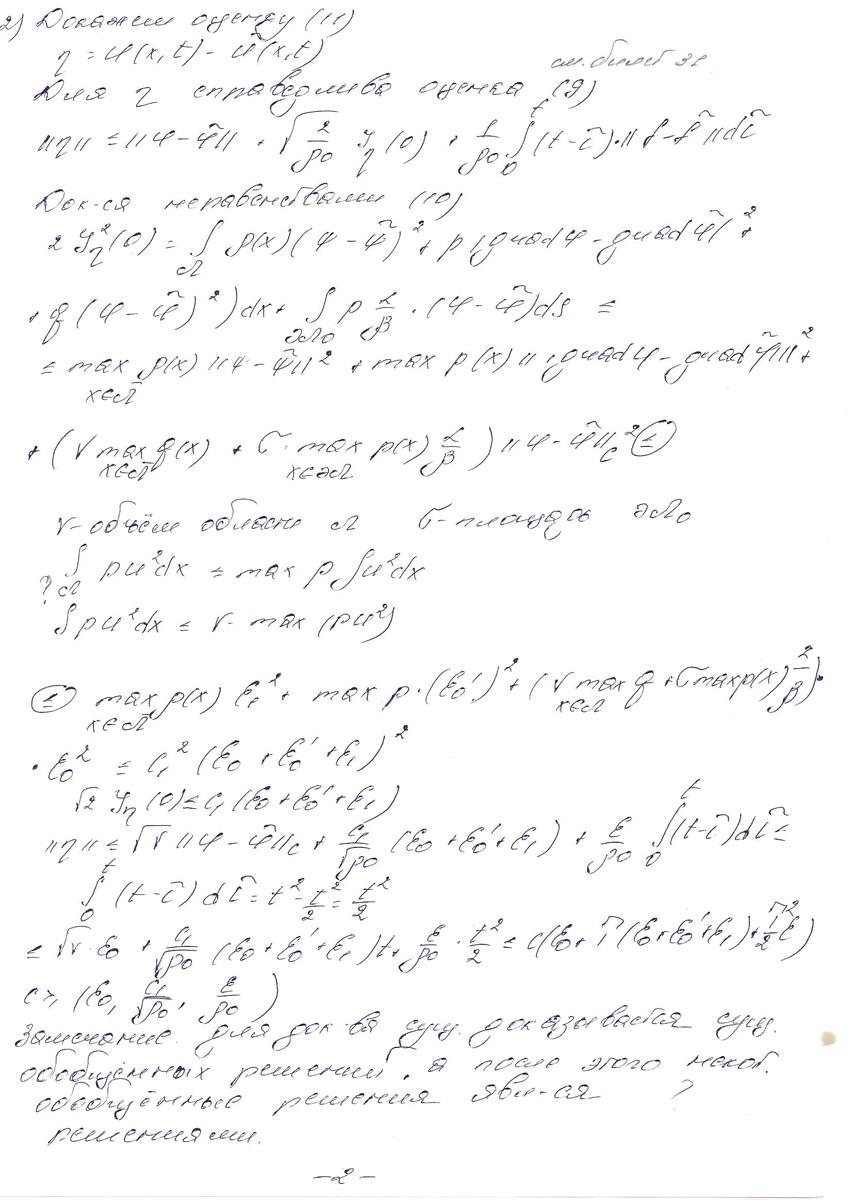 2) Докажем оценку (11)
η = u(x,t) - ũ(x,t)
см. билет 31
Для η справедлива оценка (9)
||η|| ≤ ||φ-φ̃|| + √(2/ρ0) J_η(0) + 1/ρ0 ∫_0^t (t-τ̃)·||f-f̃||dτ̃
Док-ся неравенствами (10)
2 J_η²(0) = ∫_Ω ρ(x)(ψ-ψ̃)² + p|grad φ - grad φ̃|² +
+ q(φ-φ̃)²)dx + ∫_∂Ω0 p α/β · (φ-φ̃)ds ≤
≤ max_{x∈Ω̄} ρ(x) ||ψ-ψ̃||² + max p(x) || |grad φ - grad φ̃| ||² +
+ (V max_{x∈Ω̄} q(x) + σ· max_{x∈∂Ω} p(x) α/β) ||φ-φ̃||_c² ≤
V-объём области Ω σ-площадь ∂Ω0
? ∫_Ω pu²dx ≤ max p ∫u²dx
∫pu²dx ≤ V· max (pu²)
≤ max_{x∈Ω̄} ρ(x) ε1² + max p·(ε0')² + (V max_{x∈Ω̄} q + σ max p(x) α/β)·
· ε0² ≤ c1² (ε0 + ε0' + ε1)²
√2 J_η(0) ≤ c1 (ε0 + ε0' + ε1)
||η|| ≤ √V ||φ-φ̃||_c + c1/√ρ0 (ε0 + ε0' + ε1) + ε/ρ0 ∫_0^t (t-τ̃)dτ̃ ≤
∫_0^t (t-τ̃) dτ̃ = t² - t²/2 = t²/2
≤ √V·ε0 + c1/√ρ0 (ε0 + ε0' + ε1)t + ε/ρ0 · t²/2 ≤ c(ε0 + T(ε0 + ε0' + ε1) + T²/2 ε)
c > (ε0, c1/√ρ0, ε/ρ0)
Замечание. Для док-ва сущ. доказывается сущ.
обобщённых решений, а после этого некот.
обобщённые решения явл-ся ?
решениями.
-2-